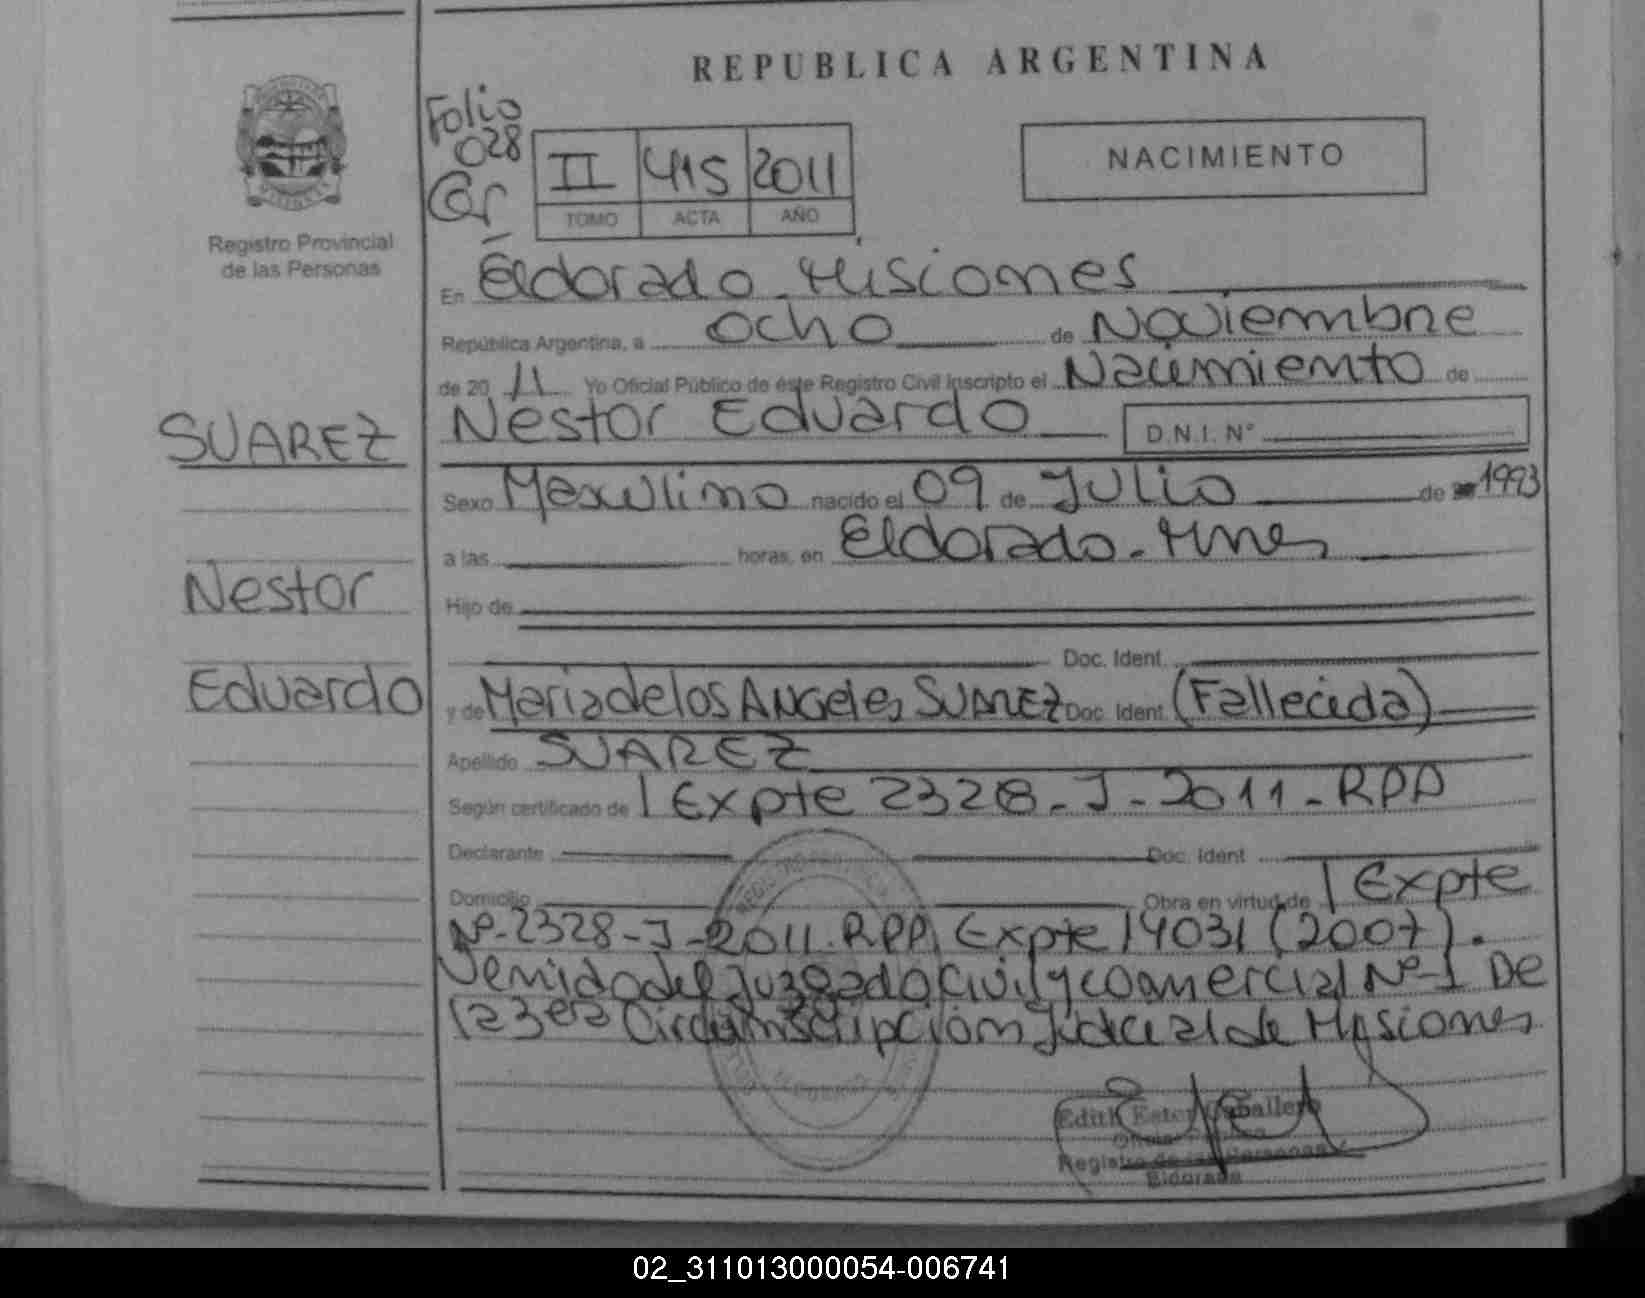 REPUBLICA ARGENTINA
Registro Provincial
de las Personas
Folio
028
II 415 2011
TOMO ACTA AÑO
NACIMIENTO
En Eldorado - Misiones
República Argentina, a ocho de Noviembre
de 20 11 Yo Oficial Público de éste Registro Civil inscripto el Nacimiento de
SUAREZ
Nestor Eduardo D.N.I. N°
Sexo Masculino nacido el 09 de Julio de 1993
a las horas, en Eldorado - Mnes
Nestor
Hijo de
Doc. Ident.
Eduardo
y de Maria de los Angeles SUAREZ Doc. Ident. (Fallecida)
Apellido SUAREZ
Según certificado de Expte 2328 - J - 2011 - RPP
Declarante Doc. Ident
Domicilio Obra en virtud de Expte
Nº 2328 - J - 2011. RPP Expte 14031 (2007).
venido del Juzgado Civil y comercial Nº 1 De
la 3era Circunscripcion Judicial de Misiones
Edith Ester Caballero
Registro de las Personas
Eldorado
02_311013000054-006741